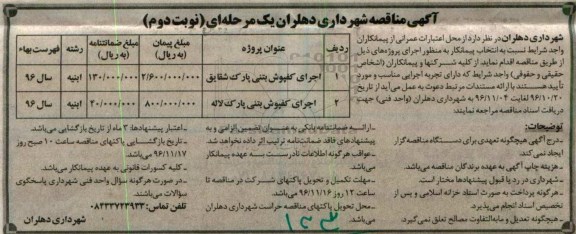 آگهی مناقصه شهرداری دهلران یک مرحله‌ای (نوبت دوم)
شهرداری دهلران در نظر دارد از محل اعتبارات عمرانی از پیمانکاران
واجد شرایط نسبت به انتخاب پیمانکار به منظور اجرای پروژه‌های ذیل
از طریق مناقصه اقدام نماید. از کلیه شرکتها و پیمانکاران (اشخاص
حقیقی و حقوقی) واجد شرایط که دارای تجربه اجرایی مناسب و مورد
تأیید هستند با ارائه مستندات مرتبط دعوت به عمل می‌آید از تاریخ
۹۶/۱۰/۲۰ لغایت ۹۶/۱۱/۰۴ به شهرداری دهلران (واحد فنی) جهت
دریافت اسناد مناقصه مراجعه نمایند:
ردیف عنوان پروژه مبلغ پیمان (به ریال) مبلغ ضمانتنامه (به ریال) رشته فهرست بهاء
۱ اجرای کفپوش بتنی پارک شقایق ۲/۶۰۰/۰۰۰/۰۰۰ ۱۳۰/۰۰۰/۰۰۰ ابنیه سال ۹۶
۲ اجرای کفپوش بتنی پارک لاله ۸۰۰/۰۰۰/۰۰۰ ۴۰/۰۰۰/۰۰۰ ابنیه سال ۹۶
توضیحات:
ـ درج آگهی هیچگونه تعهدی برای دستگاه مناقصه گزار
ایجاد نمی‌کند.
ـ هزینه چاپ آگهی به عهده برندگان مناقصه می‌باشد.
ـ شهرداری در رد یا قبول پیشنهادها مختار است.
ـ هرگونه پرداخت به صورت اسناد خزانه اسلامی و پس از
تخصیص اسناد انجام می‌پذیرد.
ـ هیچگونه تعدیل و مابه‌التفاوت مصالح تعلق نمی‌گیرد.
ـ ارائه ضمانتنامه بانکی به عنوان تضمین الزامی و به
پیشنهادهای فاقد ضمانت‌نامه ترتیب اثر داده نخواهد شد.
ـ عواقب هرگونه اطلاعات نادرست به عهده پیمانکار
می‌باشد.
ـ مهلت تکمیل و تحویل پاکتهای شرکت در مناقصه تا
ساعت ۱۲ روز ۹۶/۱۱/۱۶ می‌باشد.
ـ محل تحویل پاکتهای مناقصه حراست شهرداری دهلران
می‌باشد.
ـ اعتبار پیشنهادها: ۳ ماه از تاریخ بازگشایی می‌باشد.
ـ تاریخ بازگشایی پاکتهای مناقصه ساعت ۱۰ صبح روز
۹۶/۱۱/۱۷ می‌باشد.
ـ کلیه کسورات قانونی به عهده پیمانکار می‌باشد.
ـ در صورت هرگونه سؤال واحد فنی شهرداری پاسخگوی
سؤالات می‌باشد.
تلفن تماس: ۰۸۴۳۳۷۲۳۹۳۳
شهرداری دهلران